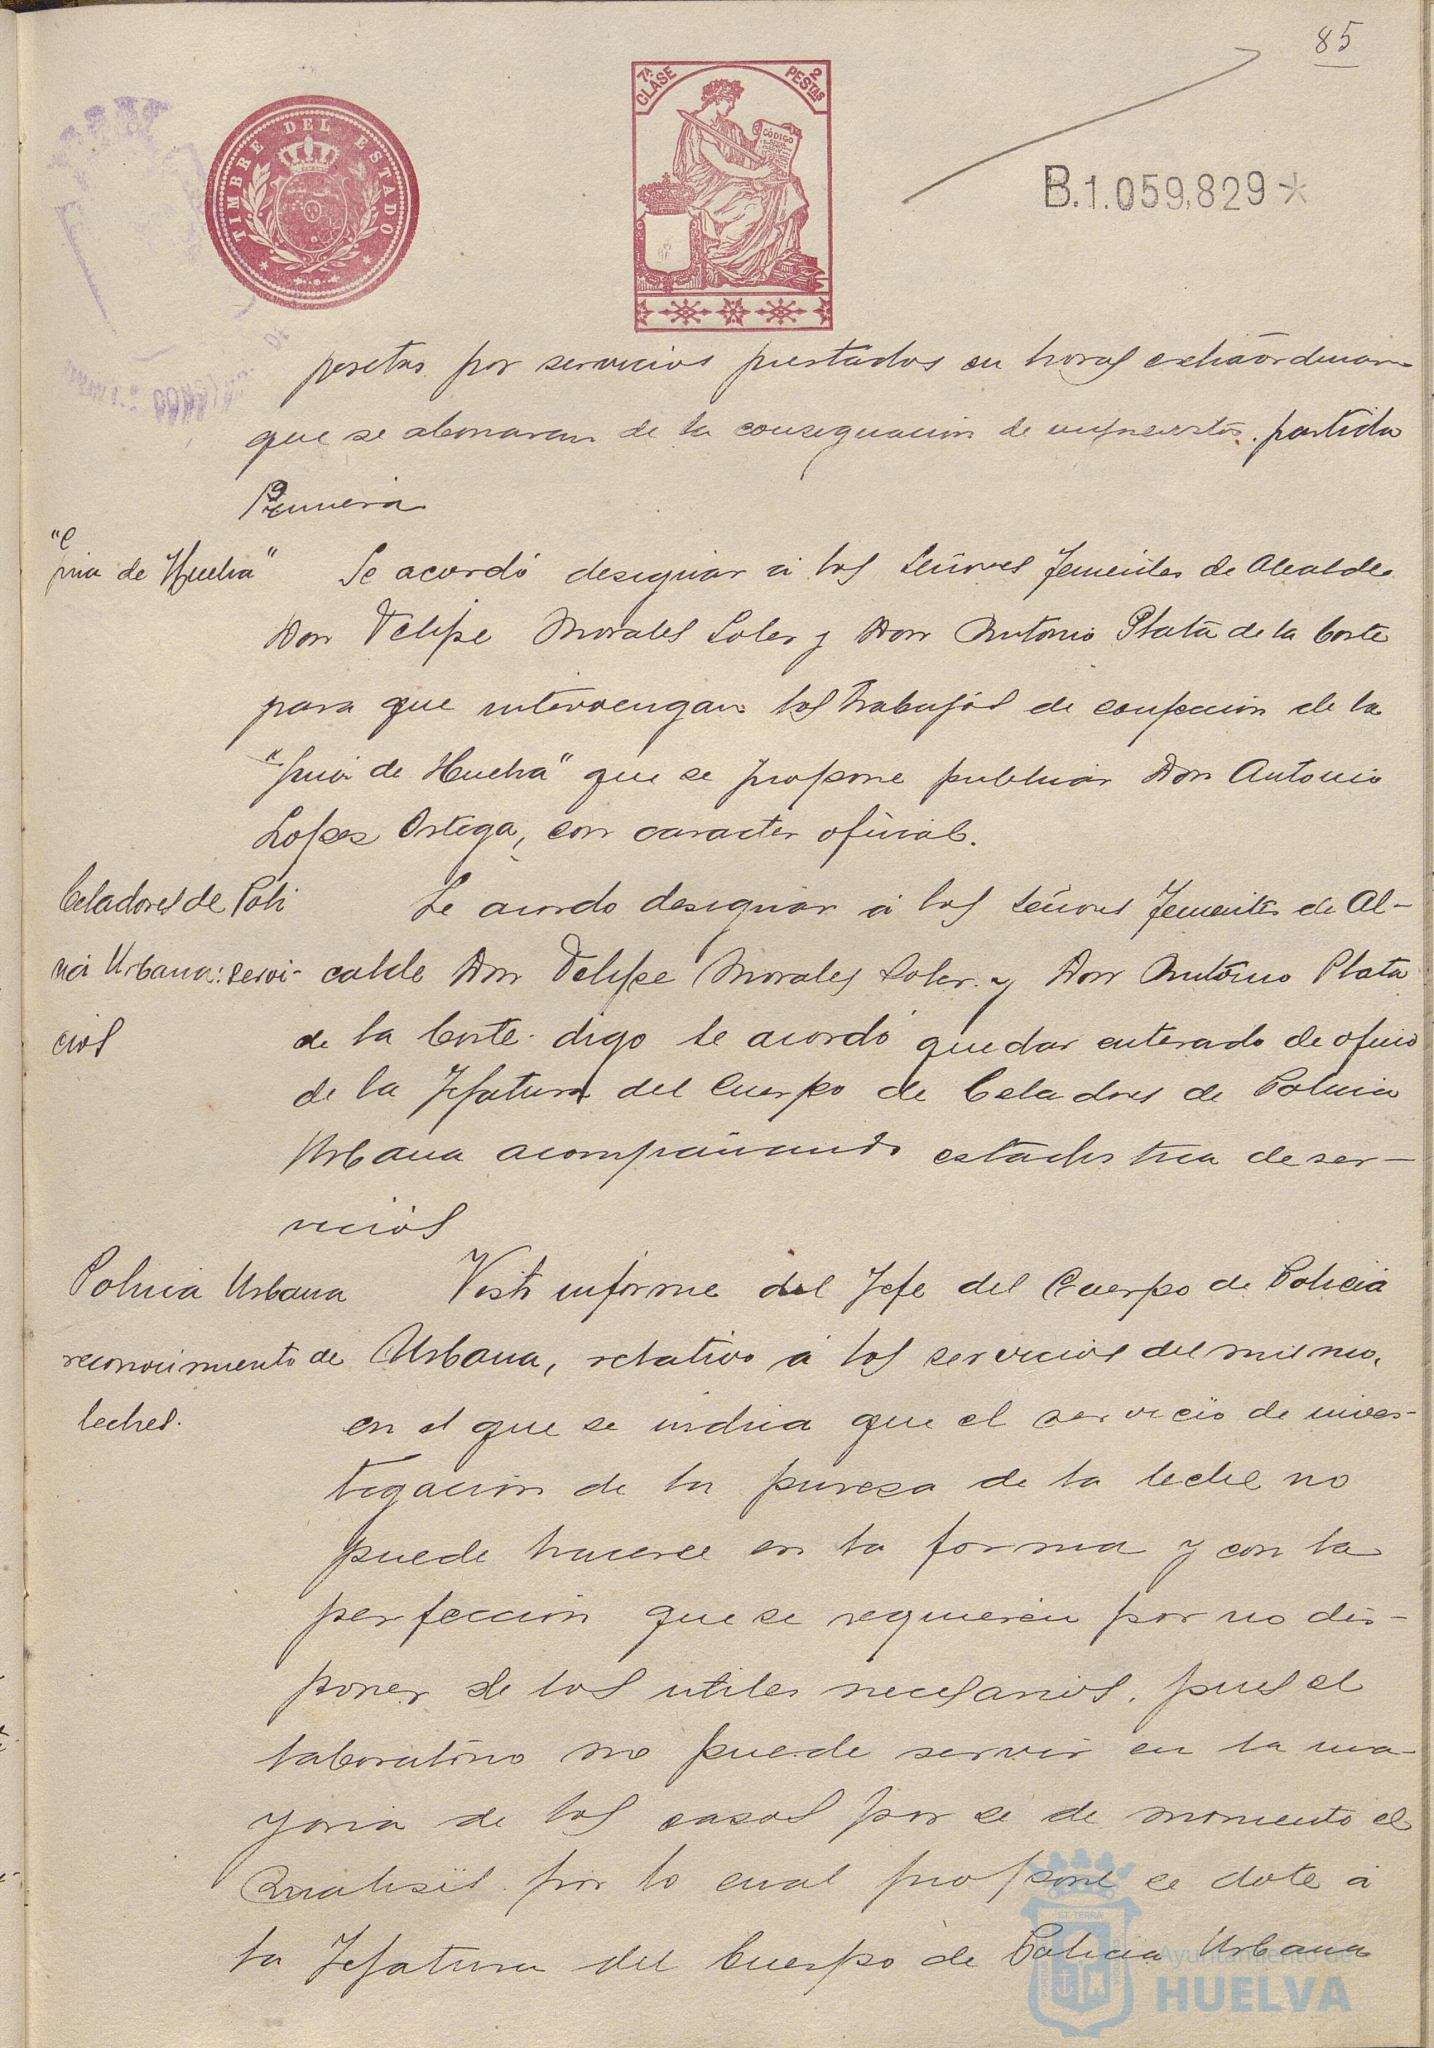 85
TIMBRE DEL ESTADO
7ª CLASE
2 PESTAS
CÓDIGO
B.1.059,829*
pesetas por servicios prestados en horas extraordinarias
que se abonaran de la consignacion de imprevistos. partida
Primera
"Guia de Huelva"
Se acordó designar á los Señores Tenientes de Alcalde
Don Felipe Morales Soler y Don Antonio Plata de la Corte
para que intervengan los trabajos de confeccion de la
"Guia de Huelva" que se propone publicar Don Antonio
Lopez Ortega, con caracter oficial.
Celadores de Poli
cia Urbana: servi-
cios
Se acordo designar á los Señores Tenientes de Al-
calde Don Felipe Morales Soler y Don Antonio Plata
de la Corte digo se acordó quedar enterado de oficio
de la Jefatura del Cuerpo de Celadores de Policia
Urbana acompañando estadistica de ser-
vicios
Policia Urbana
reconocimiento de
leches.
Visto informe del Jefe del Cuerpo de Policia
Urbana, relativo á los servicios del mismo,
en el que se indica que el servicio de inves-
tigacion de la pureza de la leche no
puede hacerse en la forma y con la
perfeccion que se requieren por no dis-
poner de los utiles necesarios, pues el
laboratorio no puede servir en la ma-
yoria de los casos por se de momento el
analisis por lo cual propone se dote á
la Jefatura del Cuerpo de Policia Urbana
Ayuntamiento de
HUELVA